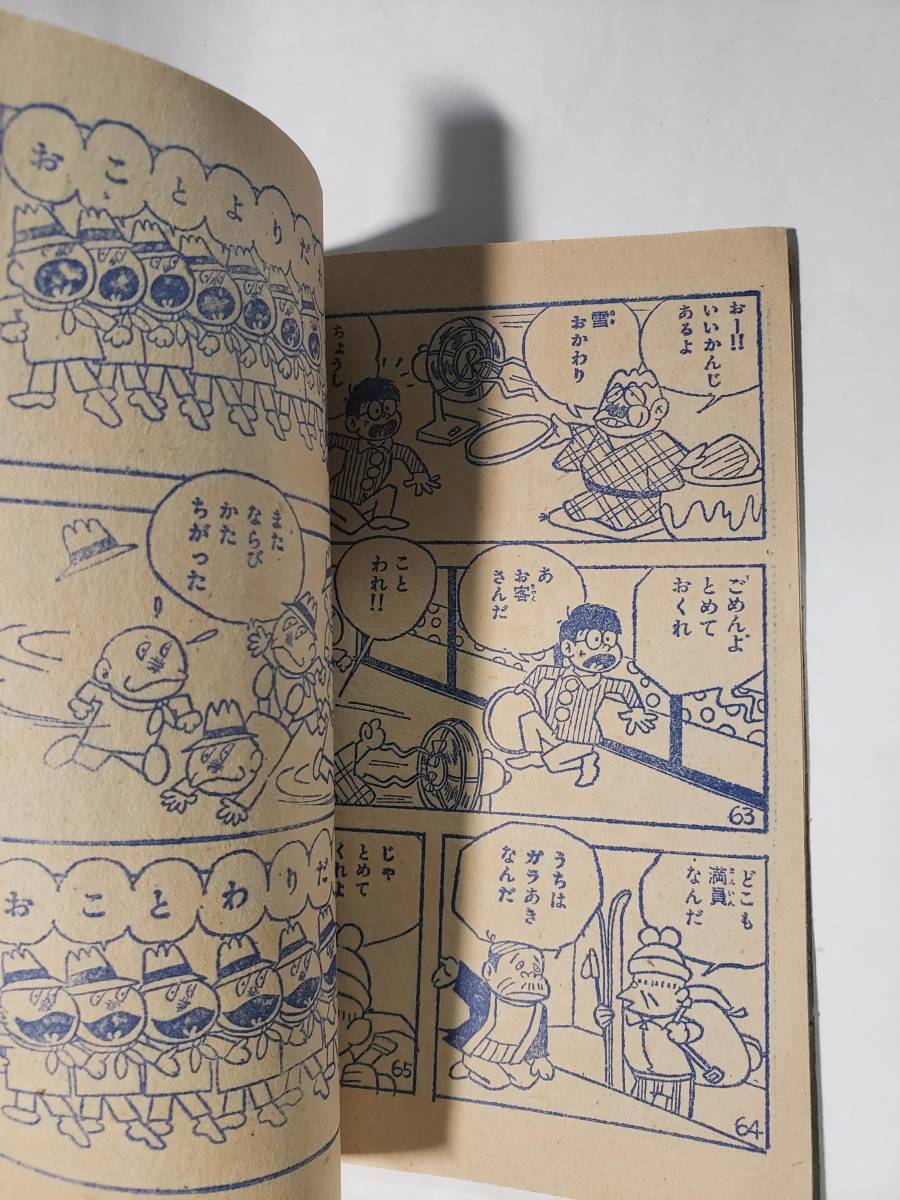 おー!!
いいかんじ
あるよ
雪
おかわり
ちょうし
ごめんよ
とめて
おくれ
あ
お客
きゃく
さんだ
こと
われ!!
63
どこも
満員
まんいん
なんだ
うちは
ガラあき
なんだ
64
じゃ
とめて
くれよ
65
おことよりだ
また
ならび
かた
ちがった
おことわりだ